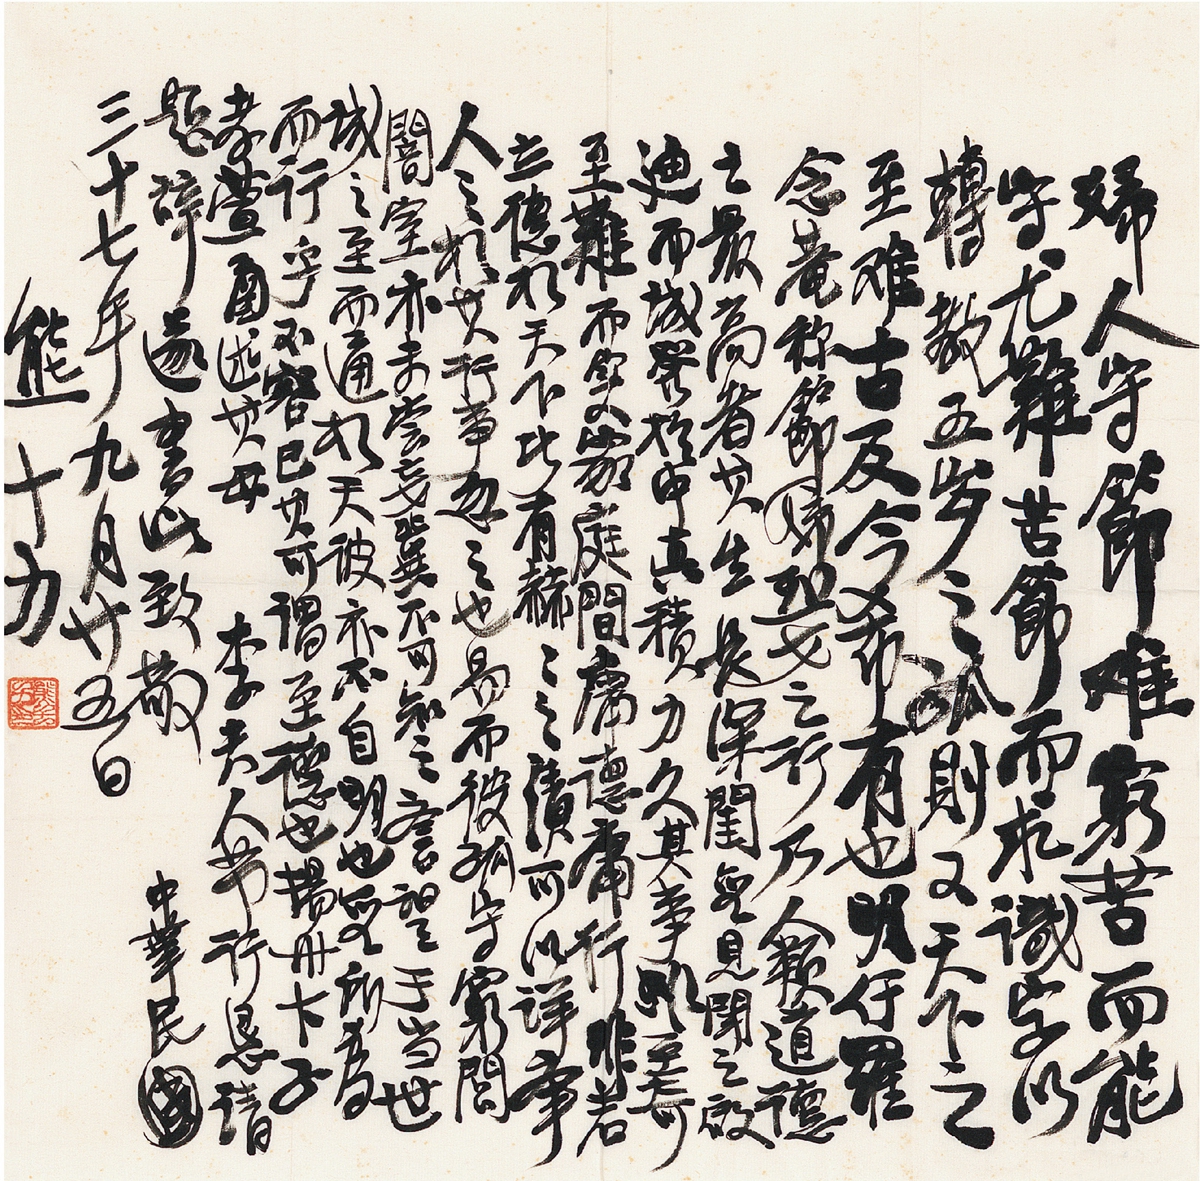 婦人守節难窮苦而能
守尤難苦節而求識字以
轉教五岁之孤則又天下之
至难古及今希有也明何羅
念菴称節婦烈女之行乃人類道德
之最高者其生長深閨無見聞之啟
迪而城發於中真積力久其事至可
至難而家庭間庸德庸行非若
立德於天下比有赫之之績可以詳事
人之於其行事忽之也易而彼孤守窮閭
闇室亦未嘗冀不可知之譽望于当世
城之至而通於天彼亦不自明也無所為
而行乎不容已其可謂至德也揚州卞子
孝萱函述其母李夫人节行恳請
題辞遂書此致敬中華民國
三十七年九月廿五日
熊十力